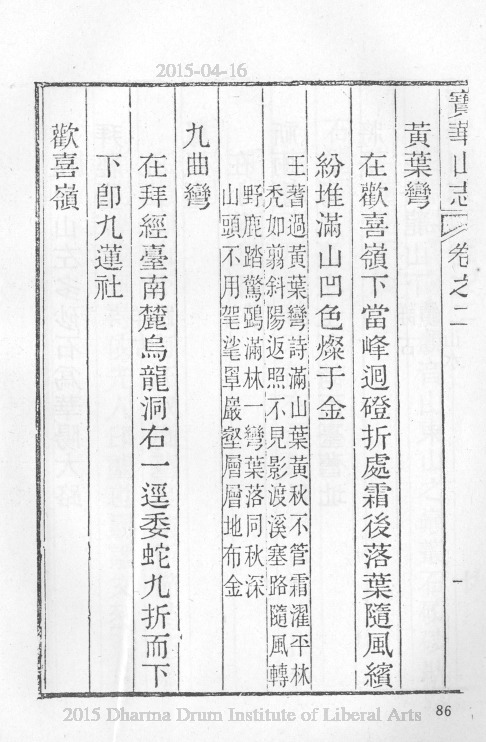 2015-04-16
寶華山志 卷之二
黃葉彎
在歡喜嶺下當峰迴磴折處霜後落葉隨風繽
紛堆滿山凹色燦于金
王蓍過黃葉彎詩滿山葉黃秋不管霜濯平林
禿如翦斜陽返照不見影渡溪塞路隨風轉
野鹿踏驚鵶滿林一彎葉落同秋深
山頭不用毣毣罩巖壑層層地布金
九曲彎
在拜經臺南麓烏龍洞右一逕委蛇九折而下
下卽九蓮社
歡喜嶺
一
86
2015 Dharma Drum Institute of Liberal Arts